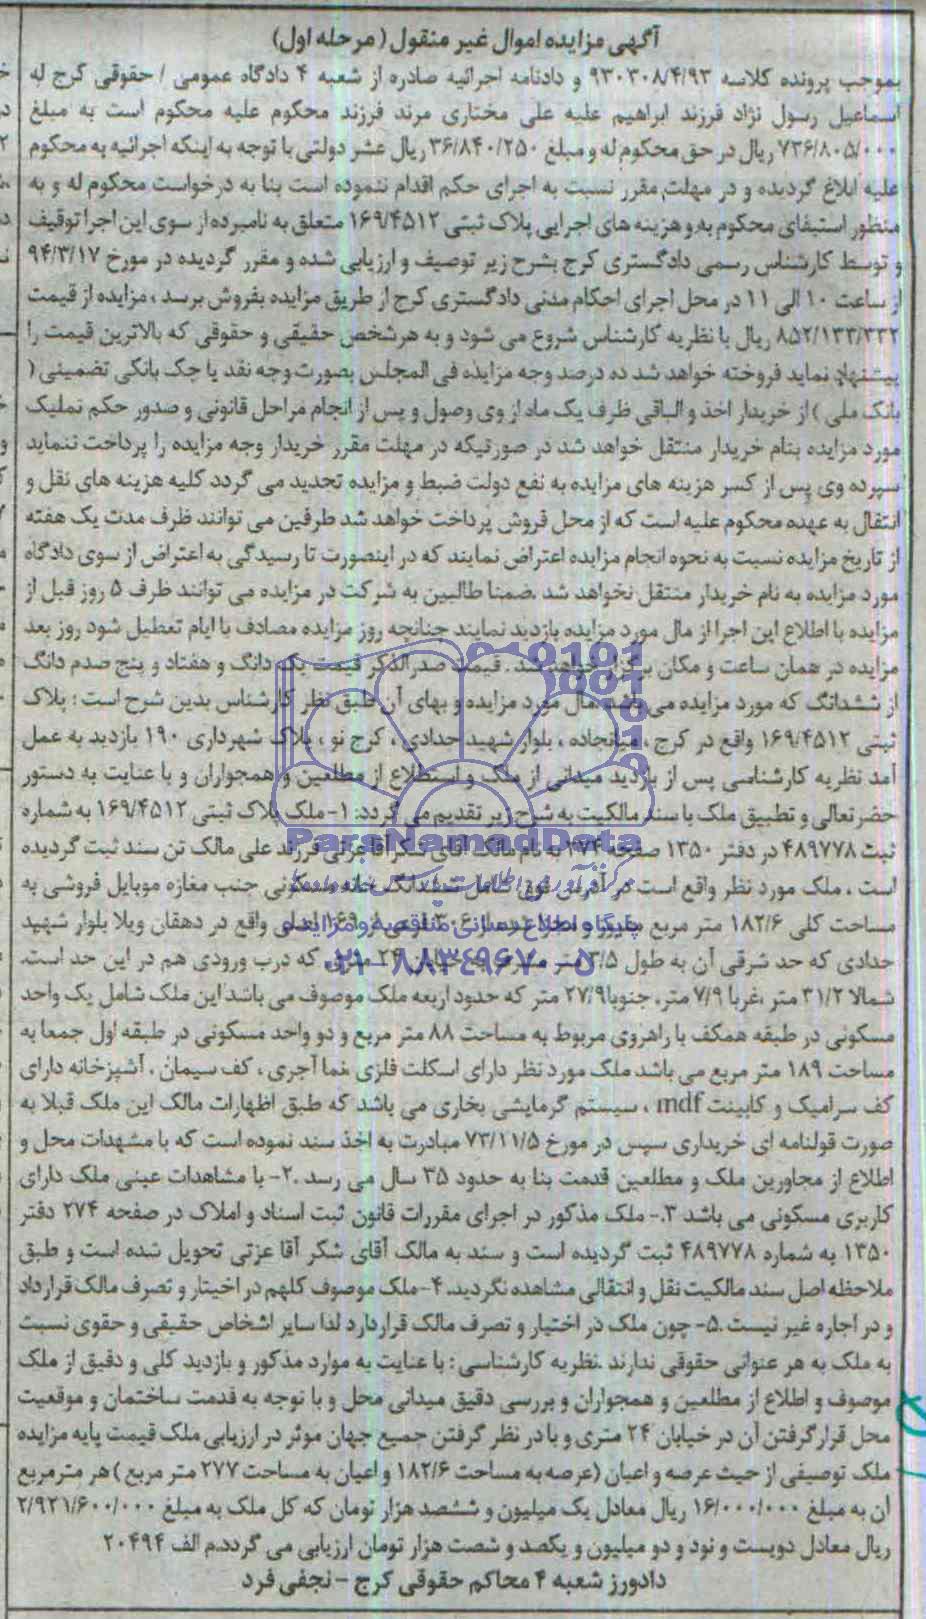 آگهی مزایده اموال غیر منقول (مرحله اول)
بموجب پرونده کلاسه ۹۳۰۳۰۸/۴/۹۳ و دادنامه اجرائیه صادره از شعبه ۴ دادگاه عمومی / حقوقی کرج له
اسماعیل رسول نژاد فرزند ابراهیم علیه علی مختاری مرند فرزند محکوم علیه محکوم است به مبلغ
۷۳۶/۸۰۵/۰۰۰ ریال در حق محکوم له و مبلغ ۳۶/۸۴۰/۲۵۰ ریال عشر دولتی با توجه به اینکه اجرائیه به محکوم
علیه ابلاغ گردیده و در مهلت مقرر نسبت به اجرای حکم اقدام ننموده است بنا به درخواست محکوم له و به
منظور استیفای محکوم به و هزینه های اجرایی پلاک ثبتی ۱۶۹/۴۵۱۲ متعلق به نامبرده از سوی این اجرا توقیف
و توسط کارشناس رسمی دادگستری کرج بشرح زیر توصیف و ارزیابی شده و مقرر گردیده در مورخ ۹۴/۳/۱۷
از ساعت ۱۰ الی ۱۱ در محل اجرای احکام مدنی دادگستری کرج از طریق مزایده بفروش برسد ، مزایده از قیمت
۸۵۲/۱۳۳/۳۳۲ ریال با نظریه کارشناس شروع می شود و به هر شخص حقیقی و حقوقی که بالاترین قیمت را
پیشنهاد نماید فروخته خواهد شد ده درصد وجه مزایده فی المجلس بصورت وجه نقد یا چک بانکی تضمینی (
بانک ملی ) از خریدار اخذ و الباقی ظرف یک ماه از وی وصول و پس از انجام مراحل قانونی و صدور حکم تملیک
مورد مزایده بنام خریدار منتقل خواهد شد در صورتیکه در مهلت مقرر خریدار وجه مزایده را پرداخت ننماید
سپرده وی پس از کسر هزینه های مزایده به نفع دولت ضبط و مزایده تجدید می گردد کلیه هزینه های نقل و
انتقال به عهده محکوم علیه است که از محل فروش پرداخت خواهد شد طرفین می توانند ظرف مدت یک هفته
از تاریخ مزایده نسبت به نحوه انجام مزایده اعتراض نمایند که در اینصورت تا رسیدگی به اعتراض از سوی دادگاه
مورد مزایده به نام خریدار منتقل نخواهد شد .ضمنا طالبین به شرکت در مزایده می توانند ظرف ۵ روز قبل از
مزایده با اطلاع این اجرا از مال مورد مزایده بازدید نمایند چنانچه روز مزایده مصادف با ایام تعطیل شود روز بعد
مزایده در همان ساعت و مکان برگزار خواهد شد . قیمت صدرالذکر قیمت یک دانگ و هفتاد و پنج صدم دانگ
از ششدانگ که مورد مزایده می باشد .مال مورد مزایده و بهای آن طبق نظر کارشناس بدین شرح است : پلاک
ثبتی ۱۶۹/۴۵۱۲ واقع در کرج ، میانجاده ، بلوار شهید حدادی ، کرج نو ، پلاک شهرداری ۱۹۰ بازدید به عمل
آمد نظریه کارشناسی پس از بازدید میدانی از ملک و استطلاع از مطلعین و همجواران و با عنایت به دستور
حضرتعالی و تطبیق ملک با سند مالکیت به شرح زیر تقدیم می گردد: ۱- ملک پلاک ثبتی ۱۶۹/۴۵۱۲ به شماره
ثبت ۴۸۹۷۷۸ در دفتر ۱۳۵۰ صفحه ۲۷۴ به نام مالک آقای شکر آقا عزتی فرزند علی مالک تن سند ثبت گردیده
است ، ملک مورد نظر واقع است در آدرس فوق شامل ششدانگ خانه مسکونی جنب مغازه موبایل فروشی به
مساحت کلی ۱۸۲/۶ متر مربع اصلی واقع در دهقان ویلا بلوار شهید
حدادی که حد شرقی آن به طول ۳/۵ متر ۲۴ متری که درب ورودی هم در این حد است.
شمالا ۳۱/۲ متر ،غربا ۷/۹ متر، جنوبا ۲۷/۹ متر که حدود اربعه ملک موصوف می باشد این ملک شامل یک واحد
مسکونی در طبقه همکف با راهروی مربوط به مساحت ۸۸ متر مربع و دو واحد مسکونی در طبقه اول جمعا به
مساحت ۱۸۹ متر مربع می باشد ملک مورد نظر دارای اسکلت فلزی ،نما آجری ، کف سیمان ، آشپزخانه دارای
کف سرامیک و کابینت mdf ، سیستم گرمایشی بخاری می باشد که طبق اظهارات مالک این ملک قبلا به
صورت قولنامه ای خریداری سپس در مورخ ۷۳/۱۱/۵ مبادرت به اخذ سند نموده است که با مشهدات محل و
اطلاع از مجاورین ملک و مطلعین قدمت بنا به حدود ۳۵ سال می رسد .۲- با مشاهدات عینی ملک دارای
کاربری مسکونی می باشد .۳- ملک مذکور در اجرای مقررات قانون ثبت اسناد و املاک در صفحه ۲۷۴ دفتر
۱۳۵۰ به شماره ۴۸۹۷۷۸ ثبت گردیده است و سند به مالک آقای شکر آقا عزتی تحویل شده است و طبق
ملاحظه اصل سند مالکیت نقل و انتقالی مشاهده نگردید. ۴- ملک موصوف کلهم در اخیتار و تصرف مالک قرارداد
و در اجاره غیر نیست .۵- چون ملک در اختیار و تصرف مالک قراردارد لذا سایر اشخاص حقیقی و حقوی نسبت
به ملک به هر عنوانی حقوقی ندارند .نظریه کارشناسی : با عنایت به موارد مذکور و بازدید کلی و دقیق از ملک
موصوف و اطلاع از مطلعین و همجواران و بررسی دقیق میدانی محل و با توجه به قدمت ساختمان و موقعیت
محل قرار گرفتن آن در خیابان ۲۴ متری و با در نظر گرفتن جمیع جهان موثر در ارزیابی ملک قیمت پایه مزایده
ملک توصیفی از حیث عرصه و اعیان (عرصه به مساحت ۱۸۲/۶ و اعیان به مساحت ۲۷۷ متر مربع ) هر متر مربع
آن به مبلغ ۱۶/۰۰۰/۰۰۰ ریال معادل یک میلیون و ششصد هزار تومان که کل ملک به مبلغ ۲/۹۲۱/۶۰۰/۰۰۰
ریال معادل دویست و نود و دو میلیون و یکصد و شصت هزار تومان ارزیابی می گردد.م الف ۲۰۴۹۴
دادورز شعبه ۴ محاکم حقوقی کرج – نجفی فرد
ParsNamadData
پایگاه اطلاع رسانی مناقصه و مزایده
۰۲۱-۸۸۳۴۹۶۷۰-۵